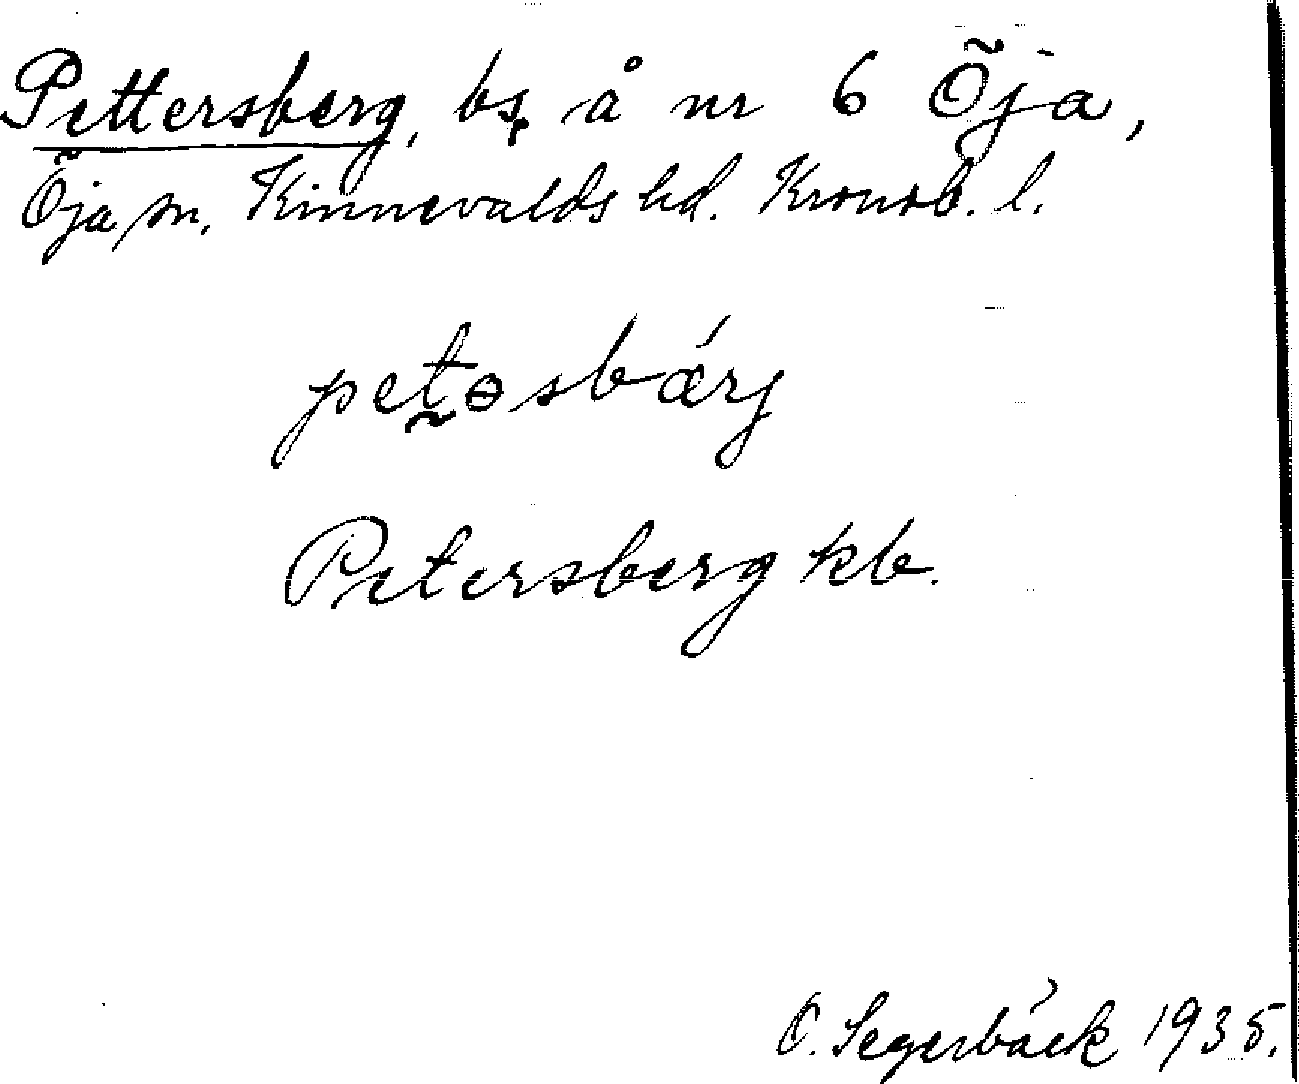 Pettersberg, bs, å nr 6 Öja,
Öja sn. Kinnevalds hd. Kronob. l.
petəsbǽrj
Petersberg kb.
O. Segerbäck 1935.